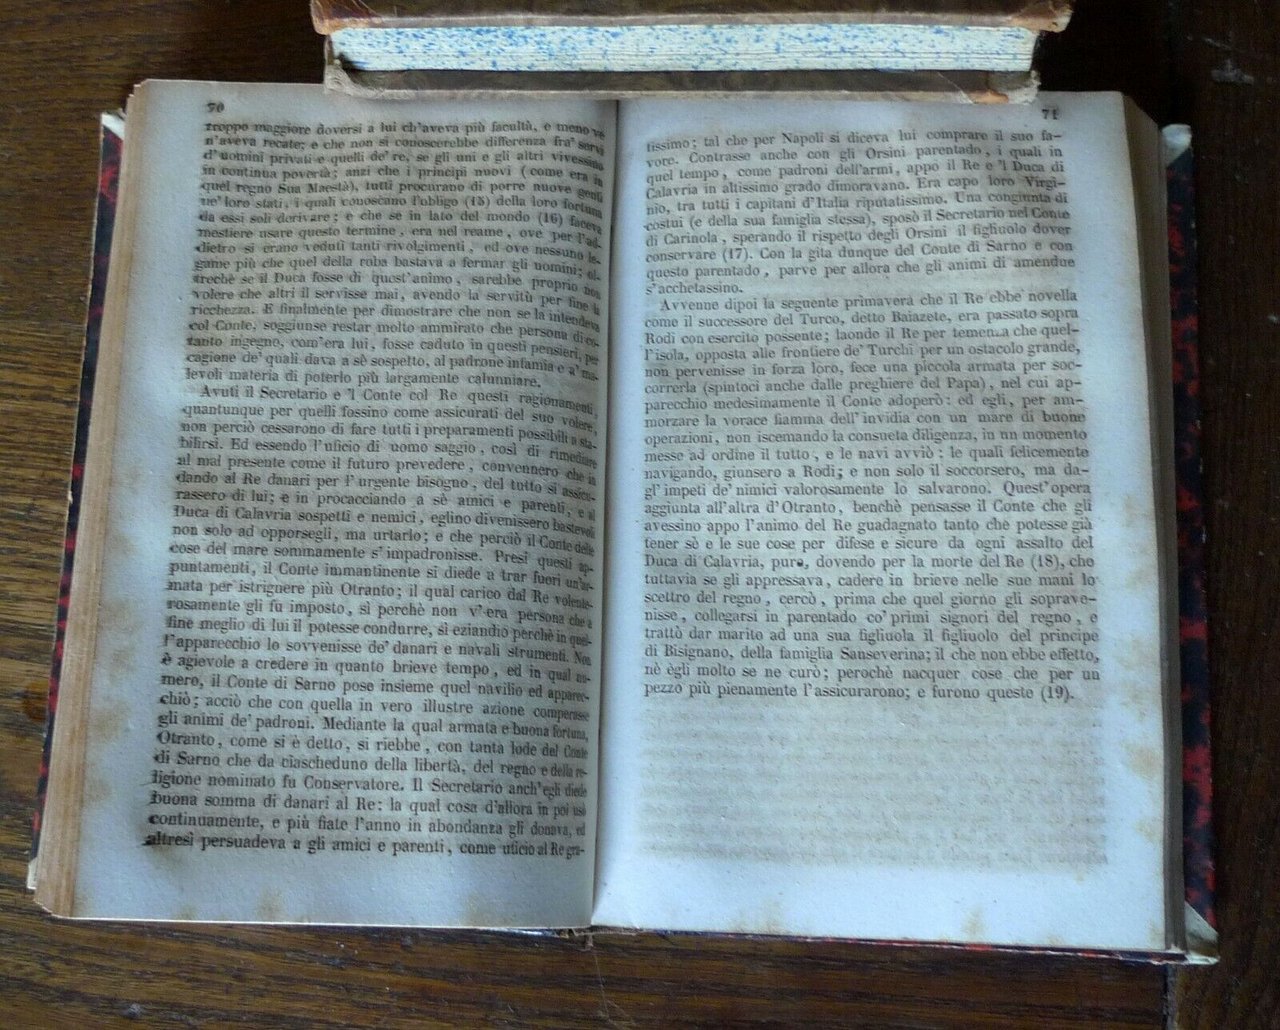 70
troppo maggiore doversi a lui ch'aveva più facultà, e meno
n'aveva recate; e che non si conoscerebbe differenza fra' servi
d'uomini privati e quelli de' re, se gli uni e gli altri vivessino
in continua povertà; anzi che i principi nuovi (come era in
quel regno Sua Maestà), tutti procurano di porre nuove genti
ne' loro stati, i quali conoscano l'obligo (15) della loro fortuna
da essi soli derivare; e che se in lato del mondo (16) faceva
mestiere usare questo termine, era nel reame, ove per l'ad-
dietro si erano veduti tanti rivolgimenti, ed ove nessuno le-
game più che quel della roba bastava a fermar gli uomini; ol-
trechè se il Duca fosse di quest'animo, sarebbe proprio non
volere che altri il servisse mai, avendo la servitù per fine la
ricchezza. E finalmente per dimostrare che non se la intendeva
col Conte, soggiunse restar molto ammirato che persona di co-
tanto ingegno, com'era lui, fosse caduto in questi pensieri, per
cagione de' quali dava a sè sospetto, al padrone infamia e a' ma-
levoli materia di poterlo più largamente calunniare.
Avuti il Secretario e 'l Conte col Re questi ragionamenti,
quantunque per quelli fossino come assicurati del suo volere,
non perciò cessarono di fare tutti i preparamenti possibili a sta-
bilirsi. Ed essendo l'uficio di uomo saggio, così di rimediare
al mal presente come il futuro prevedere, convennero che in
dando al Re danari per l'urgente bisogno, del tutto si assicu-
rassero di lui; e in procacciando a sè amici e parenti, e al
Duca di Calavria sospetti e nemici, eglino divenissero bastevoli
non solo ad opporsegli, ma urtarlo; e che perciò il Conte delle
cose del mare sommamente s'impadronisse. Presi questi ap-
puntamenti, il Conte immantinente si diede a trar fuori un'ar-
mata per istrignere più Otranto; il qual carico dal Re volente-
rosamente gli fu imposto, sì perchè non v'era persona che a
fine meglio di lui il potesse condurre, sì eziandio perchè in quel-
l'apparecchio lo sovvenisse de' danari e navali strumenti. Non
è agievole a credere in quanto brieve tempo, ed in qual nu-
mero, il Conte di Sarno pose insieme quel navilio ed apparec-
chiò; acciò che con quella in vero illustre azione comperasse
gli animi de' padroni. Mediante la qual armata e buona fortuna,
Otranto, come si è detto, si riebbe, con tanta lode del Conte
di Sarno che da ciascheduno della libertà, del regno e della re-
ligione nominato fu Conservatore. Il Secretario anch'egli diede
buona somma di danari al Re: la qual cosa d'allora in poi usò
continuamente, e più fiate l'anno in abondanza gli donava, ed
altresì persuadeva a gli amici e parenti, come uficio al Re gra-
71
tissimo; tal che per Napoli si diceva lui comprare il suo fa-
vore. Contrasse anche con gli Orsini parentado, i quali in
quel tempo, come padroni dell'armi, appo il Re e 'l Duca di
Calavria in altissimo grado dimoravano. Era capo loro Virgi-
nio, tra tutti i capitani d'Italia riputatissimo. Una congiunta di
costui (e della sua famiglia stessa), sposò il Secretario nel Conte
di Carinola, sperando il rispetto degli Orsini il figliuolo dover
conservare (17). Con la gita dunque del Conte di Sarno e con
questo parentado, parve per allora che gli animi di amendue
s'acchetassino.
Avvenne dipoi la seguente primavera che il Re ebbe novella
come il successore del Turco, detto Baiazete, era passato sopra
Rodi con esercito possente; laonde il Re per temenza che quel-
l'isola, opposta alle frontiere de' Turchi per un ostacolo grande,
non pervenisse in forza loro, fece una piccola armata per soc-
correrla (spintoci anche dalle preghiere del Papa), nel cui ap-
parecchio medesimamente il Conte adoperò: ed egli, per am-
morzare la vorace fiamma dell'invidia con un mare di buone
operazioni, non iscemando la consueta diligenza, in un momento
messe ad ordine il tutto, e le navi avviò: le quali felicemente
navigando, giunsero a Rodi; e non solo il soccorsero, ma da-
gl'impeti de' nimici valorosamente lo salvarono. Quest'opera
aggiunta all'altra d'Otranto, benchè pensasse il Conte che gli
avessino appo l'animo del Re guadagnato tanto che potesse già
tener sè e le sue cose per difese e sicure da ogni assalto del
Duca di Calavria, pure, dovendo per la morte del Re (18), che
tuttavia se gli appressava, cadere in brieve nelle sue mani lo
scettro del regno, cercò, prima che quel giorno gli soprave-
nisse, collegarsi in parentado co' primi signori del regno, e
trattò dar marito ad una sua figliuola il figliuolo del principe
di Bisignano, della famiglia Sanseverina; il che non ebbe effetto,
nè egli molto se ne curò; perochè nacquer cose che per un
pezzo più pienamente l'assicurarono; e furono queste (19).